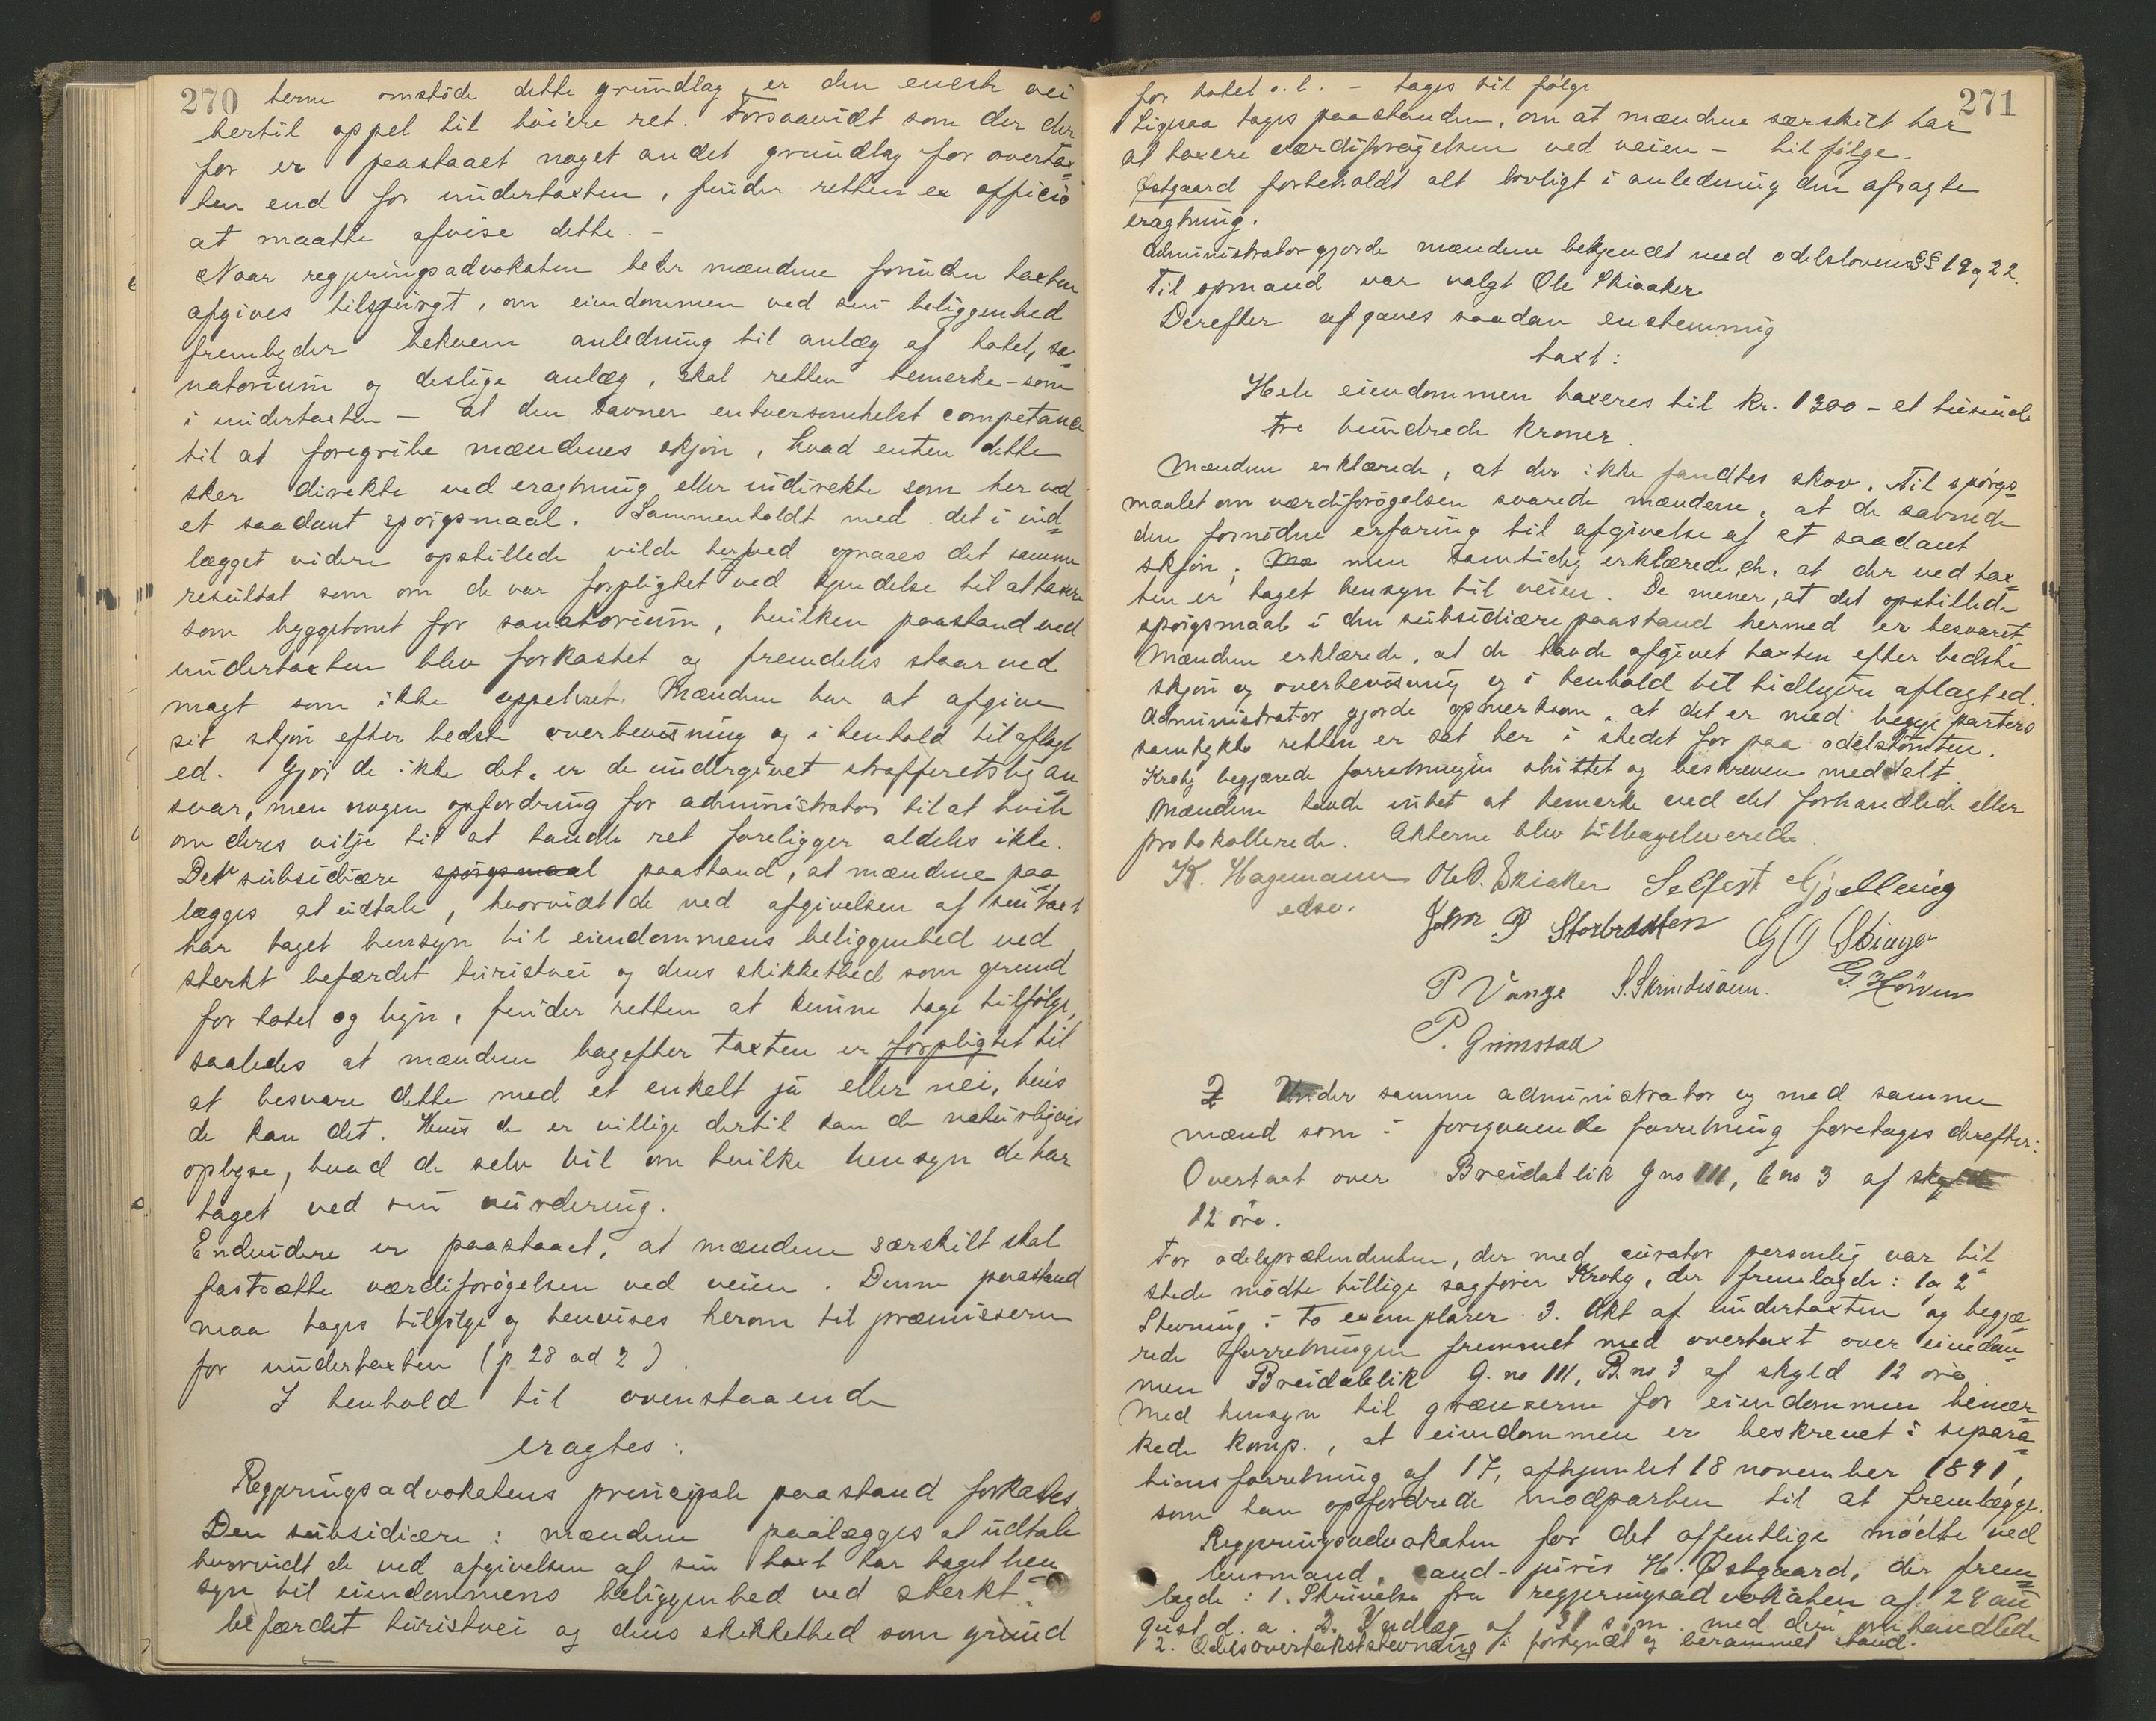 270
terne omstøde dette grundlag, er den eneste vei
hertil appel til høiere ret. Forsaavidt som der der
for er paastaaet noget andet grundlag for overtax=
ten end for undertaxten, finder retten ex officio
at maatte afvise dette. –
Naar regjeringsadvokaten beder mændene foruden taxten
afgives tilspurgt, om eiendommen ved sin beliggenhed
frembyder bekvem anledning til anlæg af hotel, sa=
natorium og deslige anlæg, skal retten bemerke – som
i undertaxten – at den savner enhversomhelst competance
til at foregribe mændenes skjøn, hvad enten dette
sker direkte ved eragtning eller indirekte som her ved
et saadant spørgsmaal. Sammenholdt med det i ind=
lægget videre opstillede vilde herved opnaaes det samme
resultat som om de var forpligtet ved kjendelse til at taxere
som byggetomt for sanatorium, hvilken paastand ved
undertaxten blev forkastet og fremdeles staar ved
magt som ikke appelleret. Mændene har at afgive
sit skjøn efter bedste overbevisning og i henhold til aflagt
ed. Gjør de ikke det, er de undergivet strafferetslig an
svar, men nogen opfordring for administrator til at tvile
om deres vilje til at handle ret foreligger aldeles ikke.
Den subsidiære spørgsmaal paastand, at mændene paa
lægges at udtale, hvorvidt de ved afgivelsen af sin taxt
har taget hensyn til eiendommens beliggenhed ved
sterkt befærdet turistvei og dens skikkethed som grund
for hotel og lign, finder retten at kunne tage tilfølge,
saaledes at mændene bagefter taxten er forpligtet til
at besvare dette med et enkelt ja eller nei, hvis
de kan det. Hvis de er villige dertil kan de naturligvis
oplyse, hvad de selv vil om hvilke hensyn de har
taget ved sin vurdering.
Endvidere er paastaaet, at mændene særskilt skal
fastsætte værdiforøgelsen ved veien. Denne paastand
maa tages tilfølge og henvises herom til præmisserne
for undertaxten (p. 28 ad 2).
I henhold til ovenstaaende
eragtes:
Regjeringsadvokatens principale paastand forkastes.
Den subsidiære: mændene paalægges at udtale
hvorvidt de ved afgivelsen af sin taxt har taget hen
syn til eiendommens beliggenhed ved sterkt
befærdet turistvei og dens skikkethed som grund
271
for hotel o.l. – tages til følge
Ligesaa tages paastanden, om at mændene særskilt har
at taxere værdiforøgelsen ved veien – til følge.
Østgaard forbeholdt alt lovligt i anledning den afsagte
eragtning.
Administrator gjorde mændene bekjendt med odelslovens §§ 19 og 22.
Til opmand var valgt Ole Skiaker
Derefter afgaves saadan enstemmig
taxt:
Hele eiendommen taxeres til kr. 1300 – et tusinde
tre hundrede kroner.
Mændene erklærede, at der ikke fandtes skov. Til spørgs=
maalet om værdiforøgelsen svarede mændene, at de savnede
den fornødne erfaring til afgivelse af et saadant
skjøn; Ma men samtidig erklærede de, at der ved tax=
ten er taget hensyn til veien. De mener, at det opstillede
spørgsmaal i den subsidiære paastand hermed er besvaret
Mændene erklærede, at de havde afgivet taxten efter bedste
skjøn og overbevisning og i henhold til tidligere aflagt ed.
Administrator gjorde opmerksom, at det er med begge parters
samtykke retten er sat her i stedet for paa odelstomten.
Krohg begjærede forretningen sluttet og beskreven meddelt.
Mændene havde intet at bemerke ved det forhandlede eller
protokollerede. Akterne blev tilbageleverede.
K. Hagemann Ole O. Skiaker Selfest Gjelleng
edsv.
John P Storbraaten
P Vange S. Skrindsveen. G. Hörven
P. Grimstad
2 Under samme administrator og med samme
mænd som i foregaaende forretning foretages derefter:
Overtaxt over Breidablik Gno 111, bno 3 af skyld
12 øre.
For odelsprætendenten, der med curator personlig var til
stede mødte billige sagfører Krohg, der fremlagde: 1 og 2
Stevning i to exemplarer. 3. Akt af undertaxten og begjæ=
rede forretningen fremmet med overtaxt over eiendom=
men Breidablik G. no 111, B. no 3 af skyld 12 øre.
Med hensyn til grænserne for eiendommen bemær=
kede komp., at eiendommen er beskrevet i separa=
tionsforretning af 17, afhjemlet 18 november 1891,
som han opfordrede modparten til at fremlægge.
Regjeringsadvokaten for det offentlige mødte ved
lensmand, cand-juris H. Østgaard, der frem=
lagde: 1. Skrivelse fra regjeringsadvokaten af 29 au
gust d.a. 2. Indlæg af 31 s.m. med den omhandlede
2. Odelsovertakststevning i forkyndt og berammet stand.